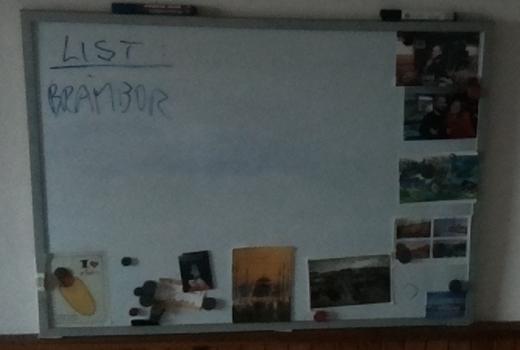 LIST
BRAMBOR
I ♥